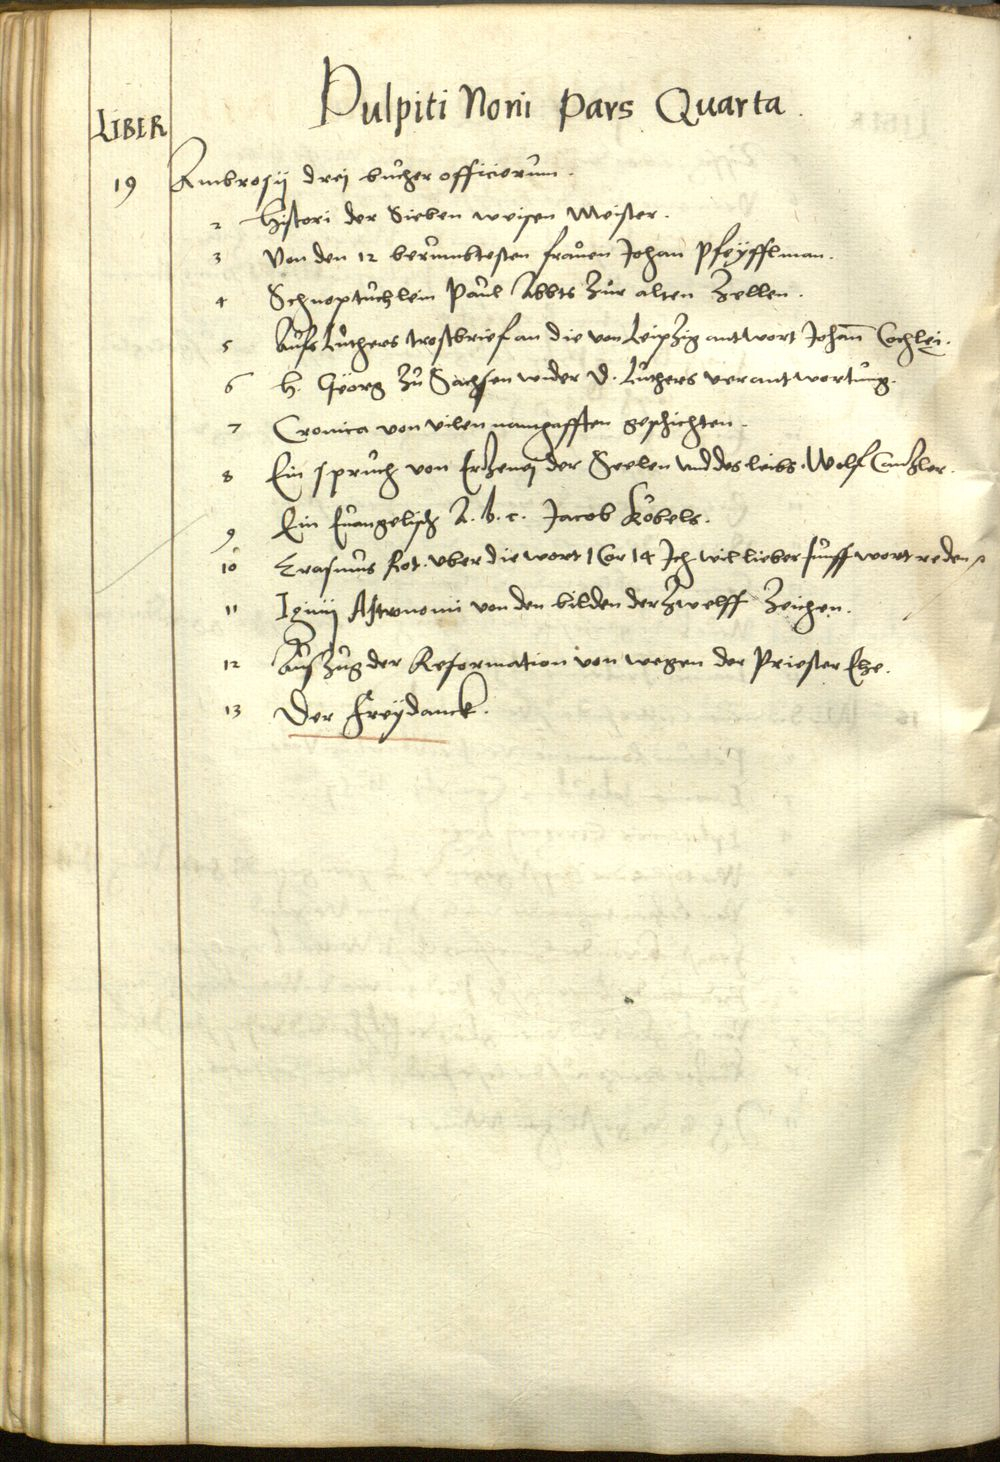 Pulpiti Noni Pars Quarta.
LIBER
19 Ambrosij drej bucher officiorum.
2 Histori der Sieben weisen Meister.
3 Von den 12 berumbtesten frauen Johan Pfeyfflman.
4 Schnoptuchlein Paul Abbts zur alten Zellen.
5 Aufs Luthers trostbrief an die von Leipzig antwort Johan̄ Cochlei.
6 H. Georg zu Sachsen wider D. Luthers verantwortung.
7 Cronica von vilen namhafften geschichten.
8 Ein spruch von Erzenej der Seelen und des leibs. Wolf Cantzler.
9 Ein Euangelisch A. b. c. Jacob Kobels.
10 Erasmus Rot. uber die wort 1 Cor 14 Ich wil lieber funff wort reden
11 Iginij Astronomi von den bilden der Zwelff Zeichen.
12 Auszug der Reformation von wegen der Priester Ehe.
13 Der Freydanck.